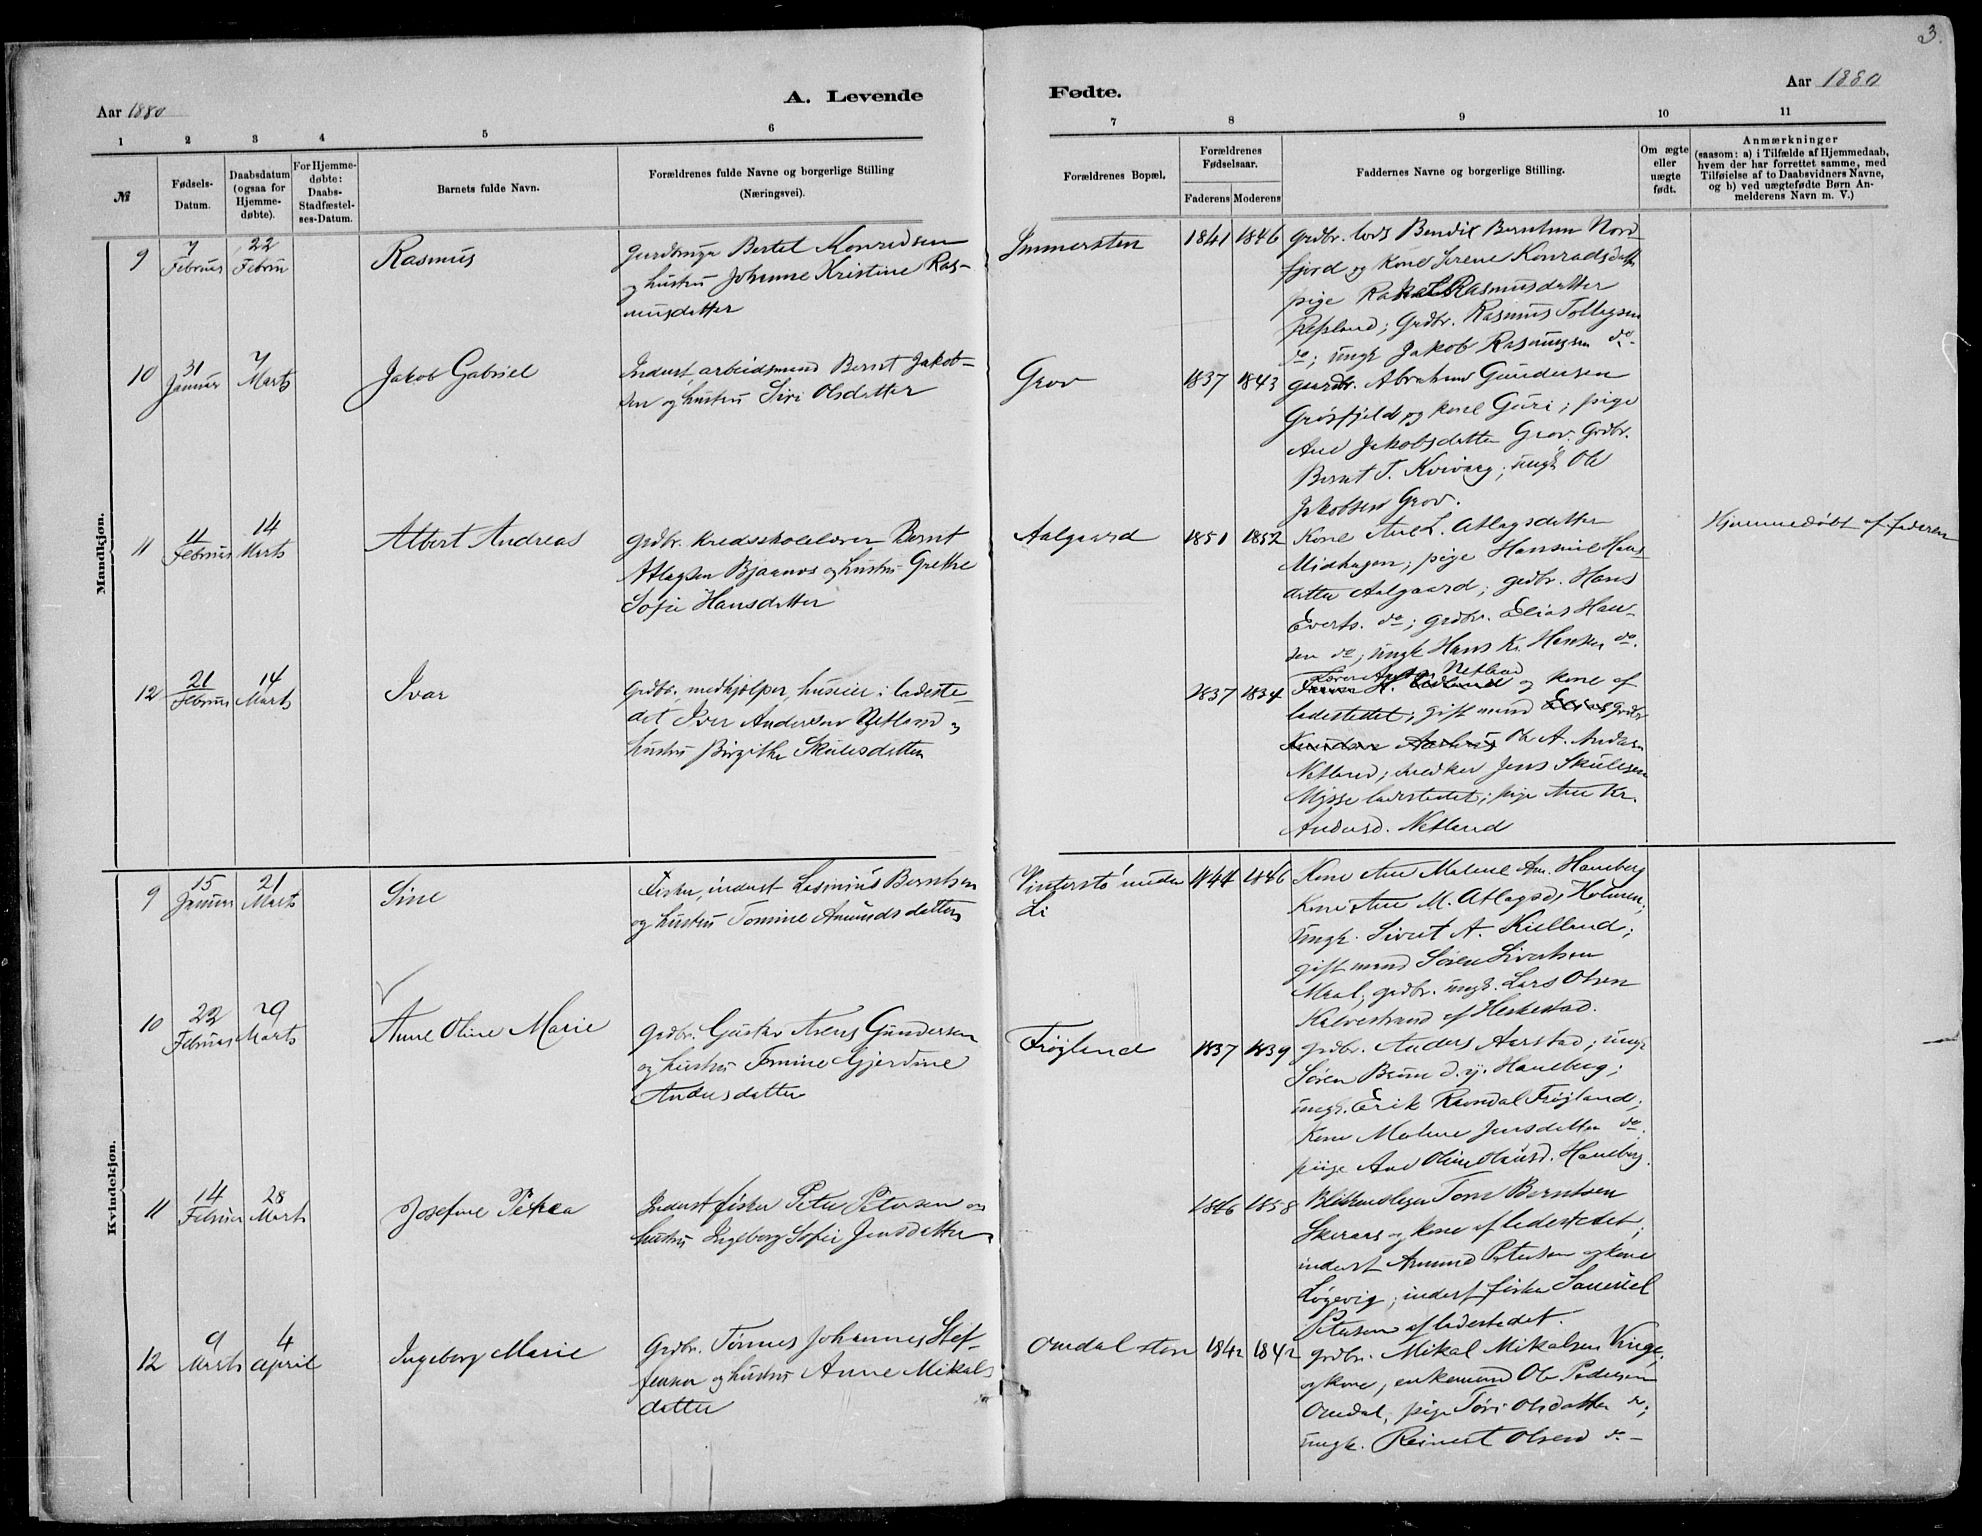 3.
Aar 1880
A. Levende
Fødte.
Aar 1880
1 2 3 4 5 6 7 8 9 10 11
№
Fødsels-
Datum.
Daabsdatum
(ogsaa for
Hjemme-
døbte).
For Hjemme-
døbte:
Daabs-
Stadfæstel-
ses-Datum.
Barnets fulde Navn.
Forældrenes fulde Navne og borgerlige Stilling
(Næringsvei).
Forældrenes Bopæl.
Forældrenes
Fødselsaar.
Faderens Moderens
Faddernes Navne og borgerlige Stilling.
Om ægte
eller
uægte
født.
Anmærkninger
(saasom: a) i Tilfælde af Hjemmedaab,
hvem der har forrettet samme, med
Tilføielse af to Daabsvidners Navne,
og b) ved uægtefødte Børn An-
melderens Navn m. V.)
Mandkjøn.
9
7
Februar
22
Februar
Rasmus
Bertel Konradsen
og hustru Johanne Kristine Ras-
musdatter
1841 1846
grdbr. lods Bendix Berntsen Nord-
fjord og kone Serene Konradsdatter
pige Rakel Rasmusdatter
grdbr. Rasmus Tollagsen
do; ungk Jakob Rasmussen do-
10
31
Januar
7
Marts
Jakob Gabriel
Inderst, arbeidsmand Bernt Jakob-
sen og hustru Siri Olsdatter
Grov
1837 1843
gardbr. Abraham Gundersen
Grøsfjeld og kone Guri; pige
Ane Jakobsdatter Grov. Grdbr.
Bernt T. ungk Ole
Jakobsen Grov.
11
11
Februar
14
Marts
Albert Andreas
Grdbr. kredsskolelærer Bernt
Atlagsen Bjaanes og hustru Grethe
Sofie Hansdatter
Aalgaard
1851 1852
Kone Ane L. Atlagsdatter
Midhagen; pige Hansine Hans-
datter Aalgaard; grdbr. Hans
Everts. do; grdbr. Elias Han-
sen do; ungk Hans Kr. Hansen do.
Hjemmedøbt af faderen
12
21
Februar
14
Marts
Ivar
Grdbr., medhjælper, huseier i ladeste-
det Iver Andersen Netland og
hustru Birgithe Skulesdatter
1837 1834
Netland
og kone af
ladestedet; gift mand grdbr
Ole A. Anders.
Netland; Jens Skulesen
Mysse ladestedet; pige Ane Kr.
Andersd. Netland
Kvindekjøn.
9
15
Januar
21
Marts
Sine
Fisker, inderst Berntsen
og hustru Tomine Amundsdatter
Vinterstø under
Li
1844 1846
Kone Ane Malene Am. Haneberg
Kone Ane M. Atlagsd. Holmen;
ungk. Sivert A. Kielland;
gift mand Søren Sivertsen
Maal; grdbr. ungk. Lars Olsen
Kalvestrand af Heskestad.
10
22
Februar
29
Marts
Anne Oline Marie
Grdbr. Gustav Asens Gundersen
og hustru Tomine Gjerdine
Andersdatter
Frøyland
1837 1839
grdbr. Anders Aarstad; ungk
Søren Bruun d. y. Haneberg;
ungk. Erik Ravndal Frøjland;
Kone Malene Jensdatter do.
piige Ane Oline Haneberg.
11
14
Februar
28
Marts
Josefine Petrea
Inderst fisker Peter Petersen og
hustru Ingeborg Sofie Jensdatter
1846 1858
Tom Berntsen
og kone af ladestedet;
inderst Amund Petersen og kone
Løgevig; inderst fisker Samuel
Petersen af ladestedet.
12
9
Marts
4
April
Ingeborg Marie
Grdbr. Tønnes Johannes Stef-
fensen og hustru Anne Mikals-
datter
Omdal store
1842 1842
grdbr. Mikal Mikalsen Vinge,
og kone; enkemand Ole Pedersen
Omdal, pige Tøri Olsdatter do;
ungk. Reinert Olsen do-